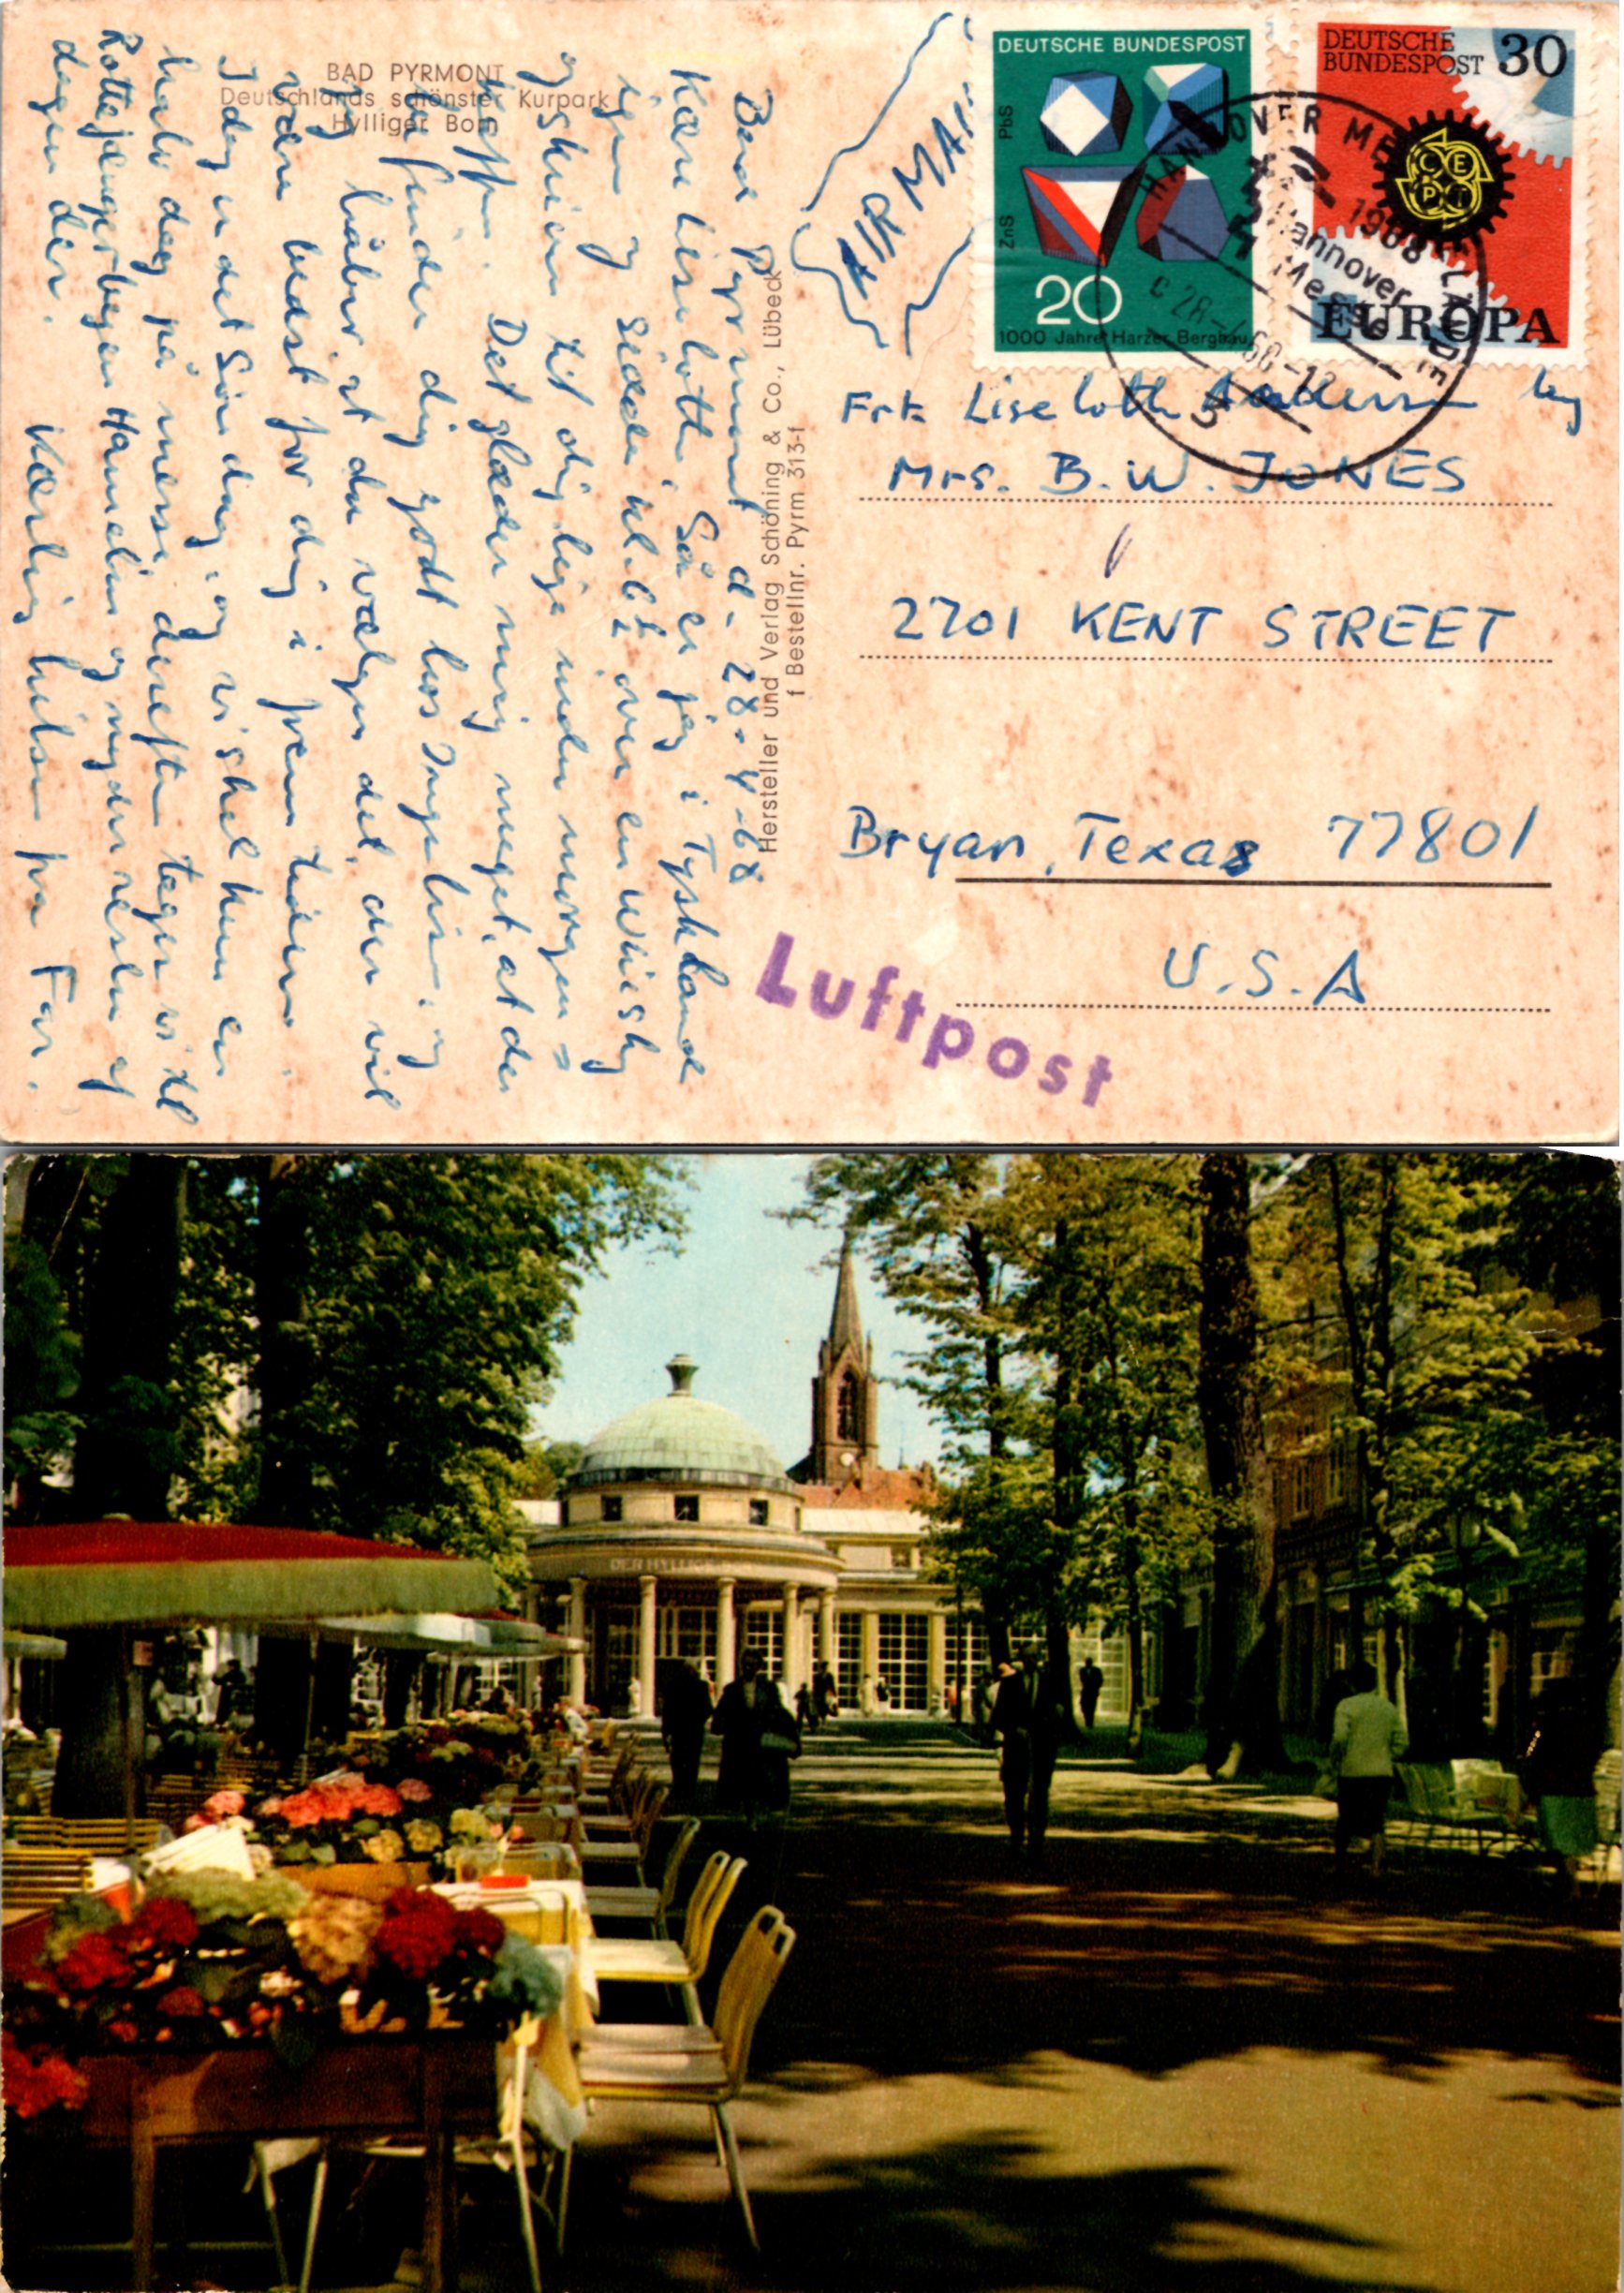 BAD PYRMONT
Deutschlands schönster Kurpark
Hylliger Born
Bad Pyrmont d. 28-4-68
Kære Liselotte, Så er jeg i Tyskland
igen og sidder kl. 6½ over en whisky
og skriver til dig lige inden morgen=
kaffen. Det glæder mig meget, at du
befinder dig godt hos Inge-lise, og
jeg håber, at du vælger det, der vil
være bedst for dig i fremtiden.
I dag er det Søndag, og vi skal kun en
halv dag på messe, derefter tager vi til
Rottefængerbyen Hameln og nyder resten af
dagen der.
Kærlig hilsen fra Far.
Hersteller und Verlag Schöning & Co., Lübeck
f Bestellnr. Pyrm 313-f
AIRMAIL
DEUTSCHE BUNDESPOST
PbS
ZnS
20
1000 Jahre Harzer Bergbau
DEUTSCHE
BUNDESPOST 30
CEPT
EUROPA
HANNOVER MESSE
1968
Hannover
Messe
Frk Liselotte Andersen
Mrs. B. W. JONES
2701 KENT STREET
Bryan, Texas 77801
U.S.A
Luftpost
DER HYLLIGE